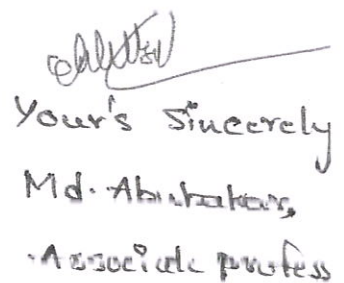 Your's Sincerely
Md. Abubakar,
Associate profess